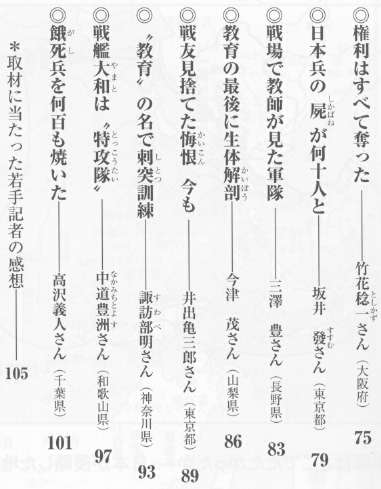 ◎権利はすべて奪った――竹花稔一さん（大阪府） 75
◎日本兵の屍が何十人と――坂井　發さん（東京都） 79
◎戦場で教師が見た軍隊――三澤　豊さん（長野県） 83
◎教育の最後に生体解剖――今津　茂さん（山梨県） 86
◎戦友見捨てた悔恨　今も――井出亀三郎さん（東京都） 89
◎〝教育〟の名で刺突訓練――諏訪部明さん（神奈川県） 93
◎戦艦大和は〝特攻隊〟――中道豊洲さん（和歌山県） 97
◎餓死兵を何百も焼いた――高沢義人さん（千葉県） 101
＊取材に当たった若手記者の感想―― 105